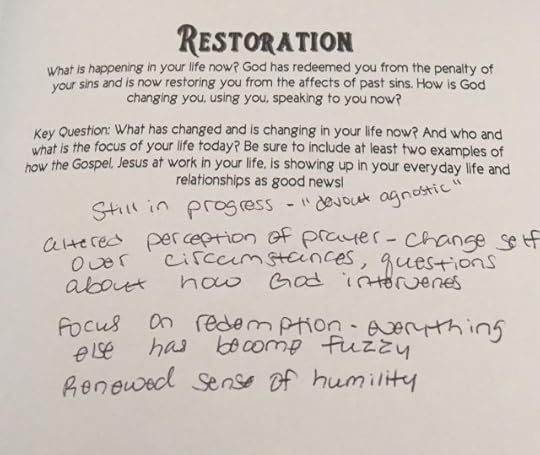 RESTORATION
What is happening in your life now? God has redeemed you from the penalty of
your sins and is now restoring you from the affects of past sins. How is God
changing you, using you, speaking to you now?
Key Question: What has changed and is changing in your life now? And who and
what is the focus of your life today? Be sure to include at least two examples of
how the Gospel, Jesus at work in your life, is showing up in your everyday life and
relationships as good news!
Still in progress - "devout agnostic"
altered perception of prayer - change self
over circumstances, questions
about how God intervenes
Focus on redemption - everything
else has become fuzzy
Renewed sense of humility